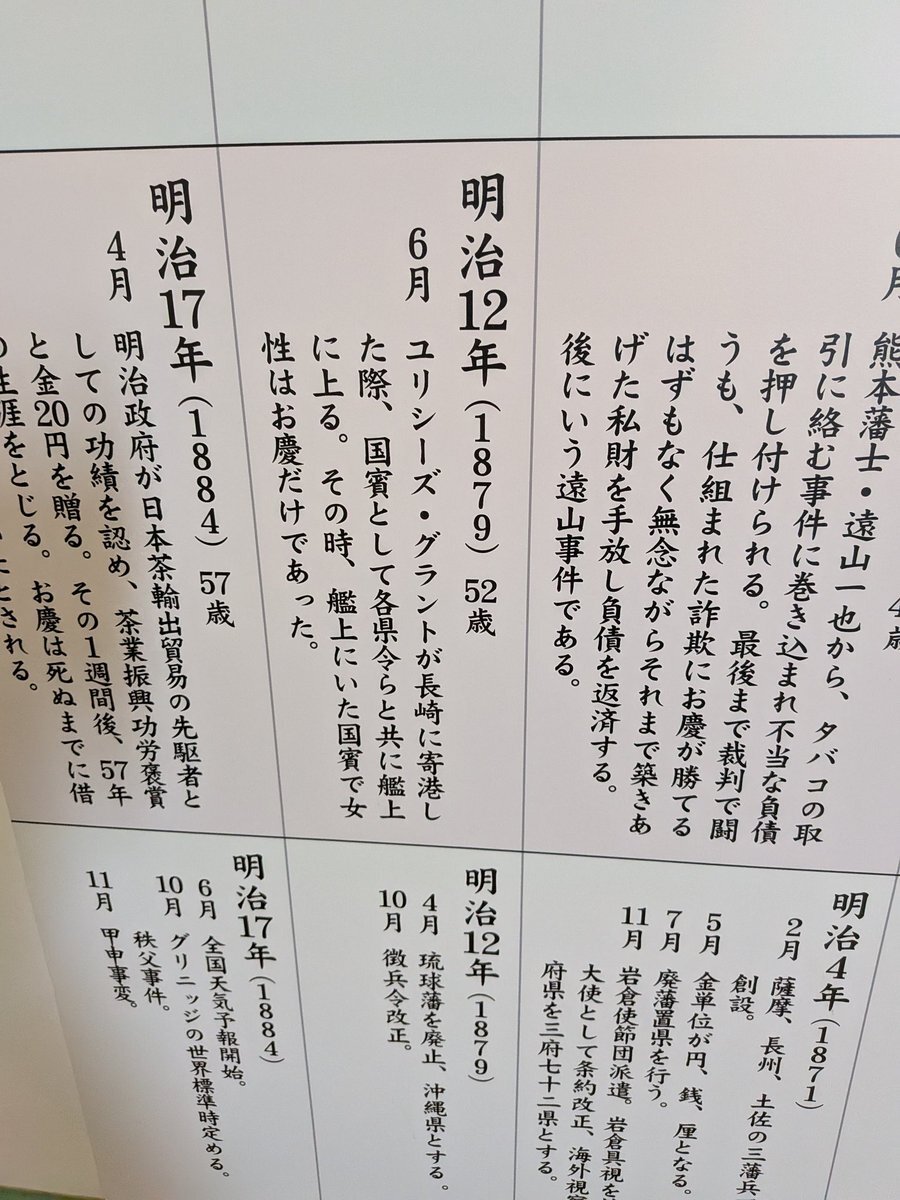 6月
4歳
熊本藩士・遠山一也から、タバコの取
引に絡む事件に巻き込まれ不当な負債
を押し付けられる。最後まで裁判で闘
うも、仕組まれた詐欺にお慶が勝てる
はずもなく無念ながらそれまで築きあ
げた私財を手放し負債を返済する。
後にいう遠山事件である。
明治12年(1879)52歳
6月 ユリシーズ・グラントが長崎に寄港し
た際、国賓として各県令らと共に艦上
に上る。その時、艦上にいた国賓で女
性はお慶だけであった。
明治17年(1884)57歳
4月 明治政府が日本茶輸出貿易の先駆者と
しての功績を認め、茶業振興功労褒賞
と金20円を贈る。その1週間後、57年
の生涯をとじる。お慶は死ぬまでに借
とされる。
明治4年(1871)
2月 薩摩、長州、土佐の三藩兵
創設。
5月 金単位が円、銭、厘となる。
7月 廃藩置県を行う。
11月 岩倉使節団派遣。岩倉具視を
大使として条約改正、海外視察
府県を三府七十二県とする。
明治12年(1879)
4月 琉球藩を廃止、沖縄県とする。
10月 徴兵令改正。
明治17年(1884)
6月 全国天気予報開始。
10月 グリニッジの世界標準時定める。
秩父事件。
11月 甲申事変。